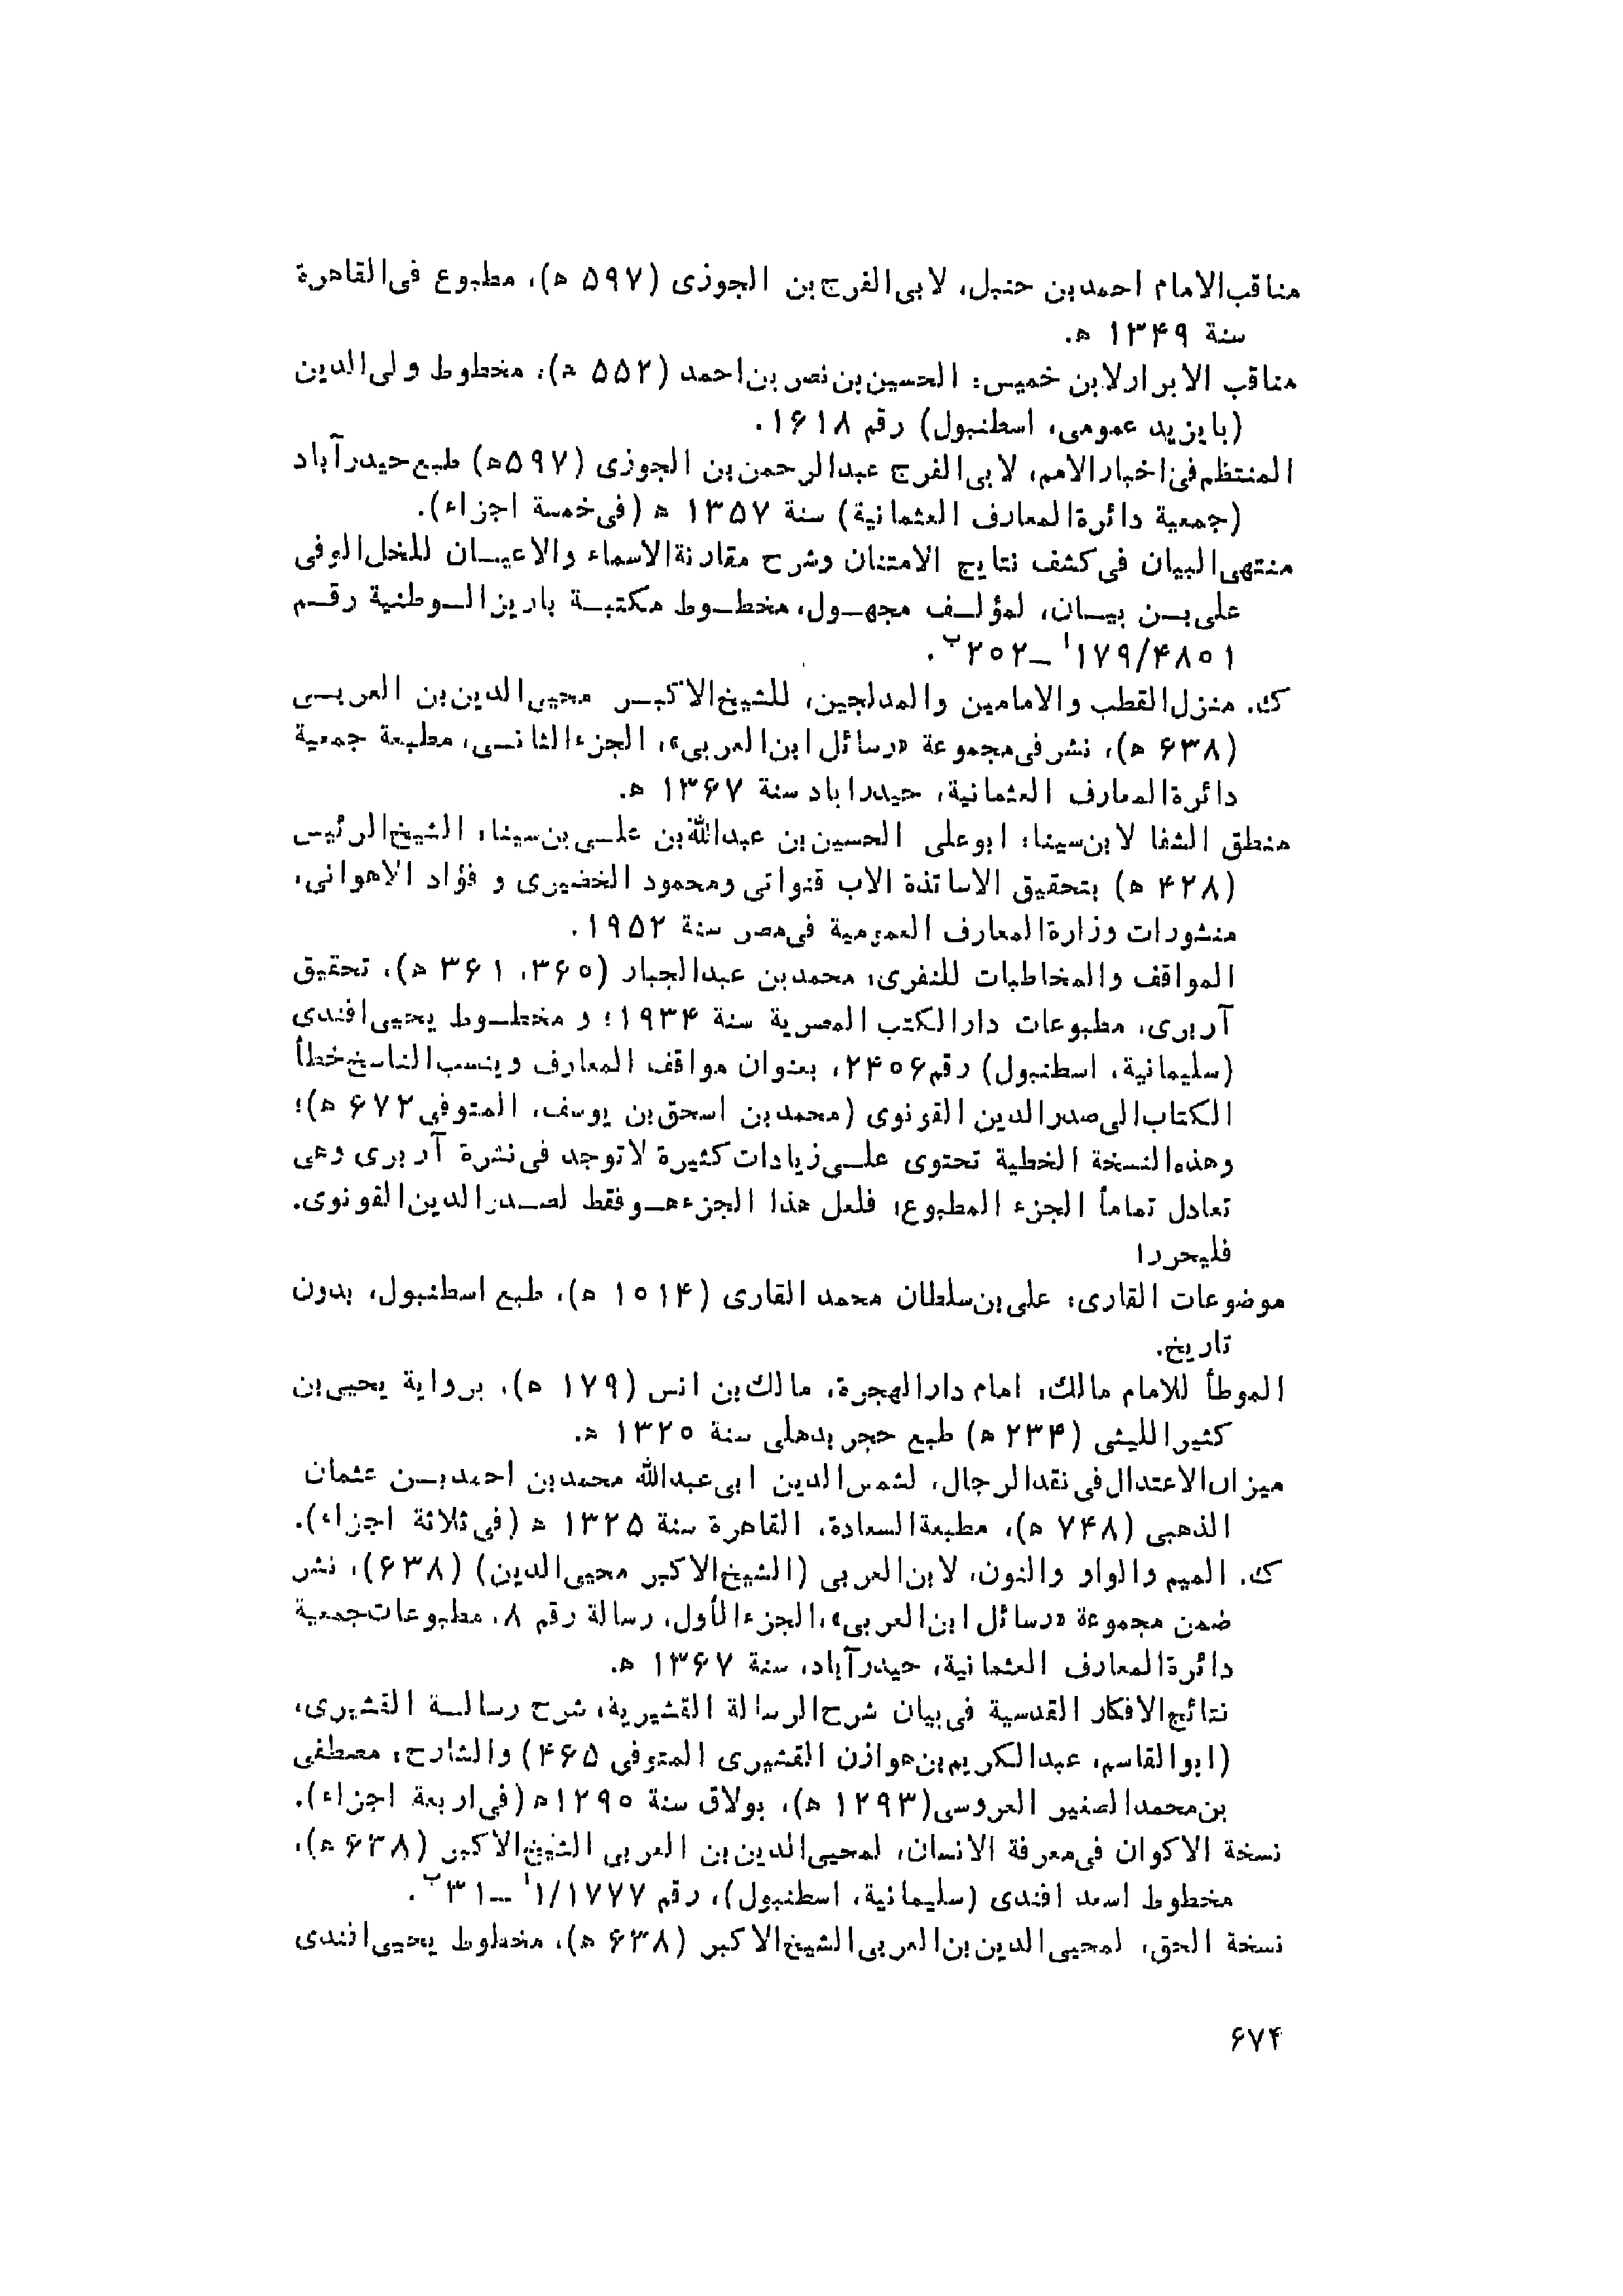 مناقب‌الامام احمدبن حنبل، لابی‌الفرج‌بن الجوزی (۵۹۷ ه)، مطبوع فی‌القاهرة
سنة ۱۳۴۹ ه.
مناقب الابرارلابن خمیس: الحسین‌بن‌نصربن‌احمد (۵۵۲ ه)، مخطوط ولی‌الدین
(بایزید عمومی، اسطنبول) رقم ۱۶۱۸.
المنتظم‌فی‌اخبارالامم، لابی‌الفرج عبدالرحمن‌بن الجوزی (۵۹۷ه) طبع‌حیدرآباد
(جمعیة دائرةالمعارف العثمانیة) سنة ۱۳۵۷ ه (فی‌خمسة اجزاء).
منتهی‌البیان فی‌کشف نتایج الامتنان وشرح مقارنةالاسماء والاعیـان للخل‌الوفی
علی‌بـن بیـان، لمؤلـف مجهـول، مخطـوط مکتبـة باریزالـوطنیة رقـم
۱۷۹/۴۸۰۱أ ـ۲۰۲ب.
ک. منزل‌القطب والامامین والمدلجین، للشیخ‌الاکبـر محیی‌الدین‌بن العربـی
(۶۳۸ ه)، نشرفی‌مجموعة «رسائل ابن‌العربی»، الجزءالثانـی، مطبعة جمعیة
دائرةالمعارف العثمانیة، حیدراباد سنة ۱۳۶۷ ه.
منطق الشفا لابن‌سینا: ابوعلی الحسین‌بن عبدالله‌بن علـی‌بن‌سینا، الشیخ‌الرئیس
(۴۲۸ ه) بتحقیق الاساتذة الاب قنواتی ومحمود الخضیری و فؤاد الاهوانی،
منشورات وزارةالمعارف العمومیة فی‌مصر سنة ۱۹۵۲.
المواقف والمخاطبات للنفری: محمدبن عبدالجبار (۳۶۰، ۳۶۱ ه)، تحقیق
آربری، مطبوعات دارالکتب المصریة سنة ۱۹۳۴؛ و مخطـوط یحیی‌افندی
(سلیمانیة، اسطنبول) رقم۲۴۰۶، بعنوان مواقف المعارف وینسب‌الناسخ‌خطأ
الکتاب‌الی‌صدرالدین القونوی (محمدبن اسحق‌بن یوسف، المتوفی۶۷۲ ه)؛
وهذه‌النسخة الخطیة تحتوی علـی‌زیادات‌کثیرة لاتوجد فی‌نشرة آربری وهی
تعادل تماماً الجزء المطبوع؛ فلعل هذا الجزءهـوفقط لصـدرالدین‌القونوی.
فلیحررا
موضوعات القاری: علی‌بن‌سلطان محمد القاری (۱۰۱۴ ه)، طبع اسطنبول، بدون
تاریخ.
الموطأ للامام مالك، امام دارالهجرة، مالك‌بن انس (۱۷۹ ه)، بروایة یحیی‌بن
کثیراللیثی (۲۳۴ ه) طبع حجر بدهلی سنة ۱۳۲۰ ه.
میزان‌الاعتدال‌فی‌نقدالرجال، لشمس‌الدین ابی‌عبدالله محمدبن احمدبـن عثمان
الذهبی (۷۴۸ ه)، مطبعةالسعادة، القاهرة سنة ۱۳۲۵ ه (فی‌ثلاثة اجزاء).
ک. المیم والواو والنون، لابن‌العربی (الشیخ‌الاکبر محیی‌الدین) (۶۳۸)، نشر
ضمن مجموعة «رسائل ابن‌العربی»،الجزءالأول، رسالة رقم ۸، مطبوعات‌جمعیة
دائرةالمعارف العثمانیة، حیدرآباد، سنة ۱۳۶۷ ه.
نتائج‌الافکار القدسیة فی‌بیان شرح‌الرسالة القشیریة، شرح رسالـة القشیری،
(ابوالقاسم، عبدالکریم‌بن‌هوازن القشیری المتوفی ۴۶۵) والشارح: مصطفی
بن‌محمدالصغیر العروسی(۱۲۹۳ ه)، بولاق سنة ۱۲۹۰ه (فی‌اربعة اجزاء).
نسخة الاکوان فی‌معرفة الانسان، لمحیی‌الدین‌بن العربی الشیخ‌الاکبر (۶۳۸ه)،
مخطوط اسعد افندی (سلیمانیة، اسطنبول)، رقم ۱/۱۷۷۷أ ـ۳۱ب.
نسخة الحق، لمحیی‌الدین‌بن‌العربی‌الشیخ‌الاکبر (۶۳۸ ه)، مخطوط یحیی‌افندی
۶۷۴